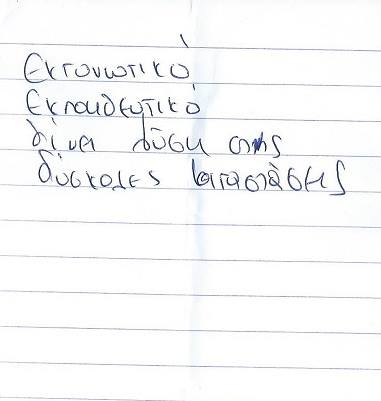 Εκτονωτικό
Εκπαιδευτικό
δίνει λύση στής
δύσκολες καταστάσης